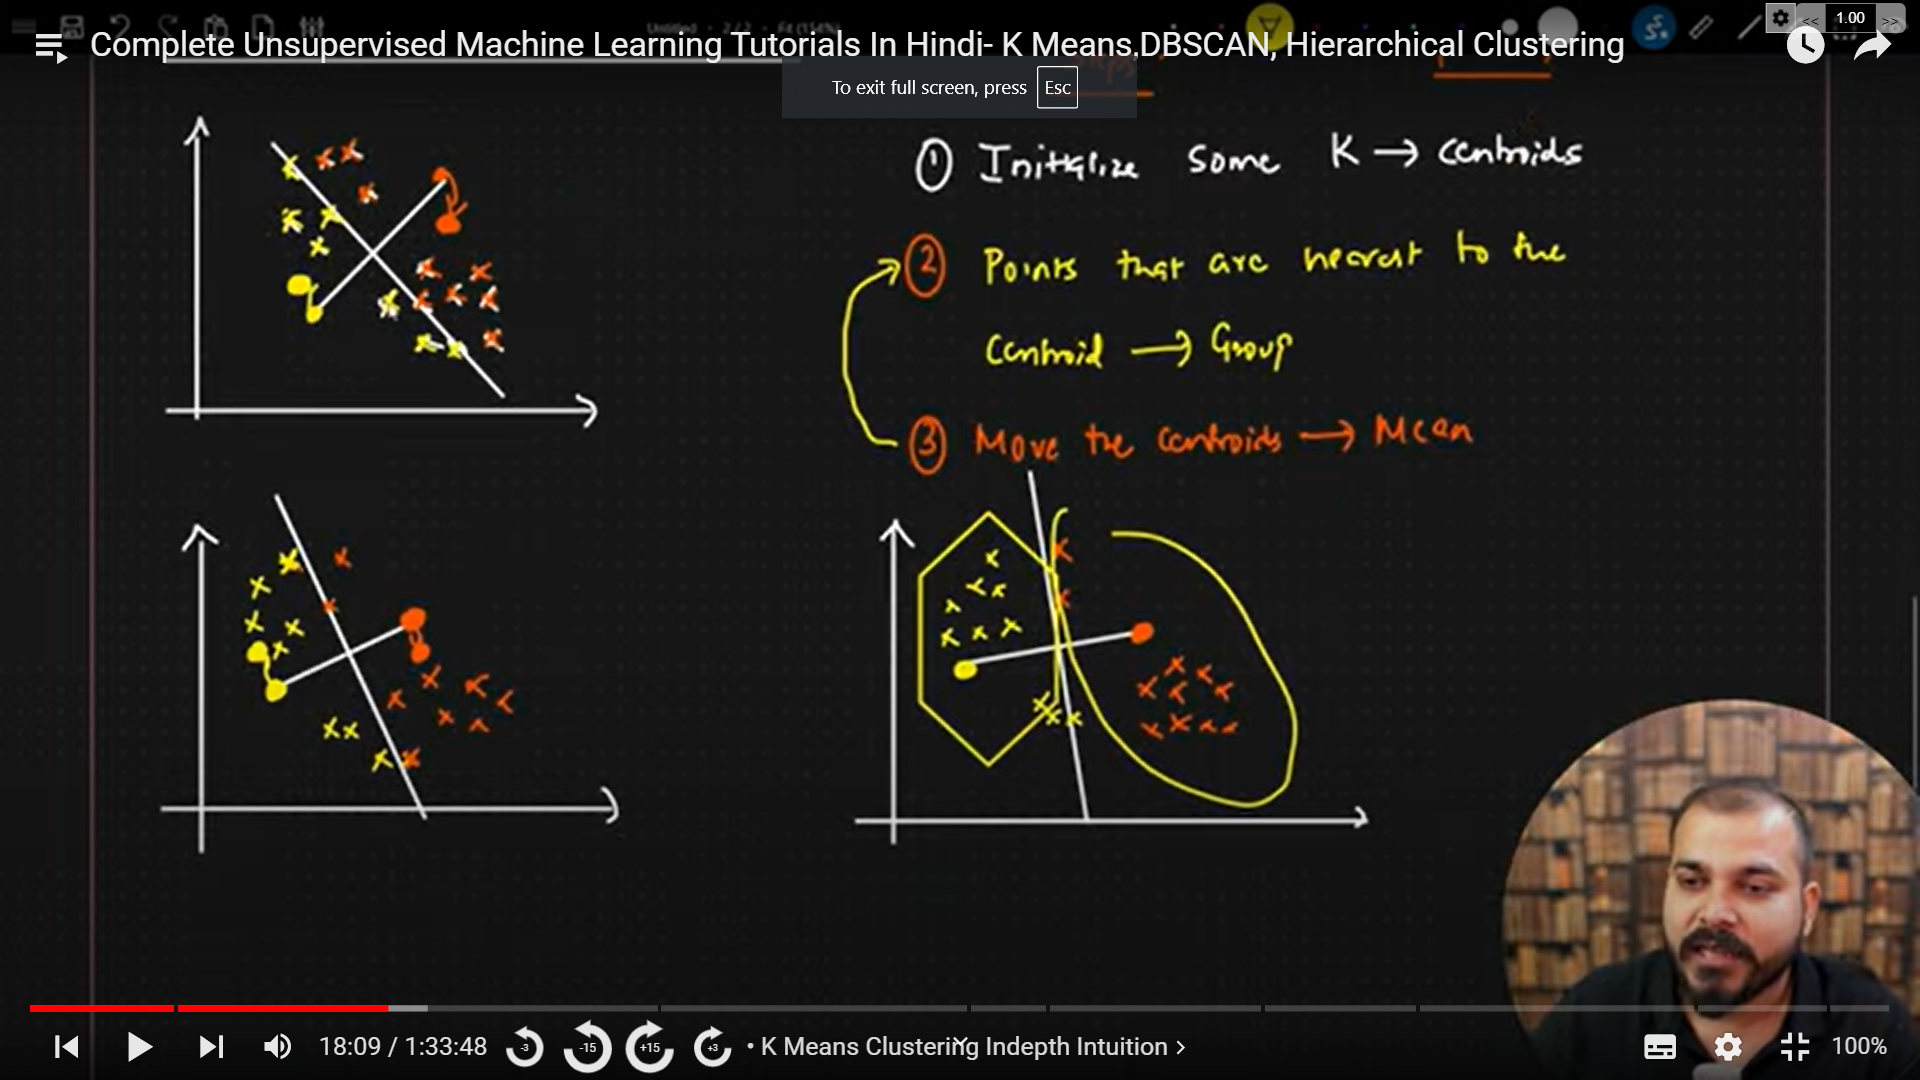 Complete Unsupervised Machine Learning Tutorials In Hindi- K Means,DBSCAN, Hierarchical Clustering
<< 1.00 >>
To exit full screen, press Esc
① Initialize some K → centroids
② Points that are nearest to the
Centroid → Group
③ Move the centroids → Mean
18:09 / 1:33:48
-3
-15
+15
+3
• K Means Clustering Indepth Intuition >
100%